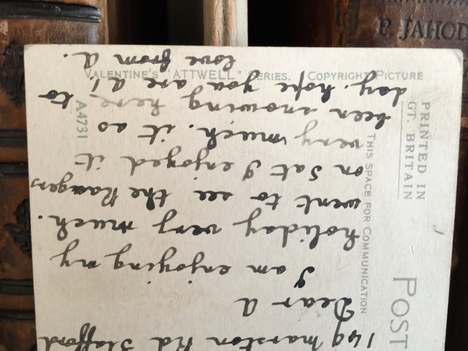 P. JAHOD
VALENTINE'S "ATTWELL" SERIES. COPYRIGHT PICTURE
A4731
PRINTED IN
GT. BRITAIN
THIS SPACE FOR COMMUNICATION
POST
149 Marston Rd Stafford
Dear A
I am enjoying my
holiday very much.
went to see the Rangers
on Sat I enjoyed it
very much. it as
been snowing here to
day. hope you are A.1.
love from A.